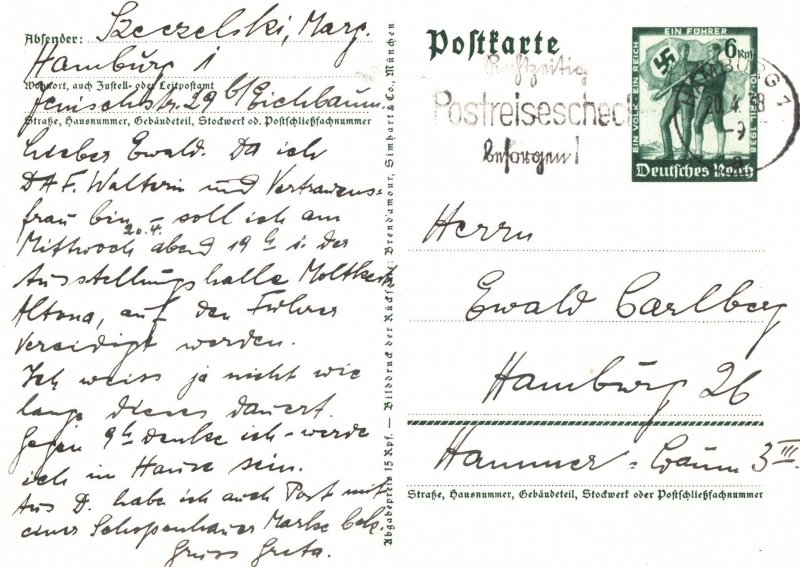 Absender: Szczelski, Marg.
Hamburg 1
Wohnort, auch Zustell- oder Leitpostamt
Jenischstr. 29 b/ Eichbaum
Straße, Hausnummer, Gebäudeteil, Stockwerk od. Postschließfachnummer
Lieber Ewald. Da ich
DAF. Walterin und Vertrauens-
frau bin – soll ich am
Mittwoch 20.4. abend 19 h i. der
Ausstellungshalle Moltkestr
Altona, auf den Führer
vereidigt werden.
Ich weiss ja nicht wie
lange dieses dauert.
Gegen 9 h denke ich – werde
ich in Hause sein.
Aus D. habe ich auch Post mit
einer Schopenhauer Marke bek.
Gruss Greta.
Abgabepreis 15 Rpf. — Bilddruck der Rückseite: Brend'amour, Simhart & Co., München
Postkarte
Rechtzeitig
Postreisescheck
besorgen!
HAMBURG 1
20.4.38
-9
a
EIN VOLK · EIN REICH
EIN FÜHRER
10. APRIL 1938
6 Rpf
Deutsches Reich
Herrn
Ewald Carlberg
Hamburg 26
Hammer-baum 3 III.
Straße, Hausnummer, Gebäudeteil, Stockwerk oder Postschließfachnummer